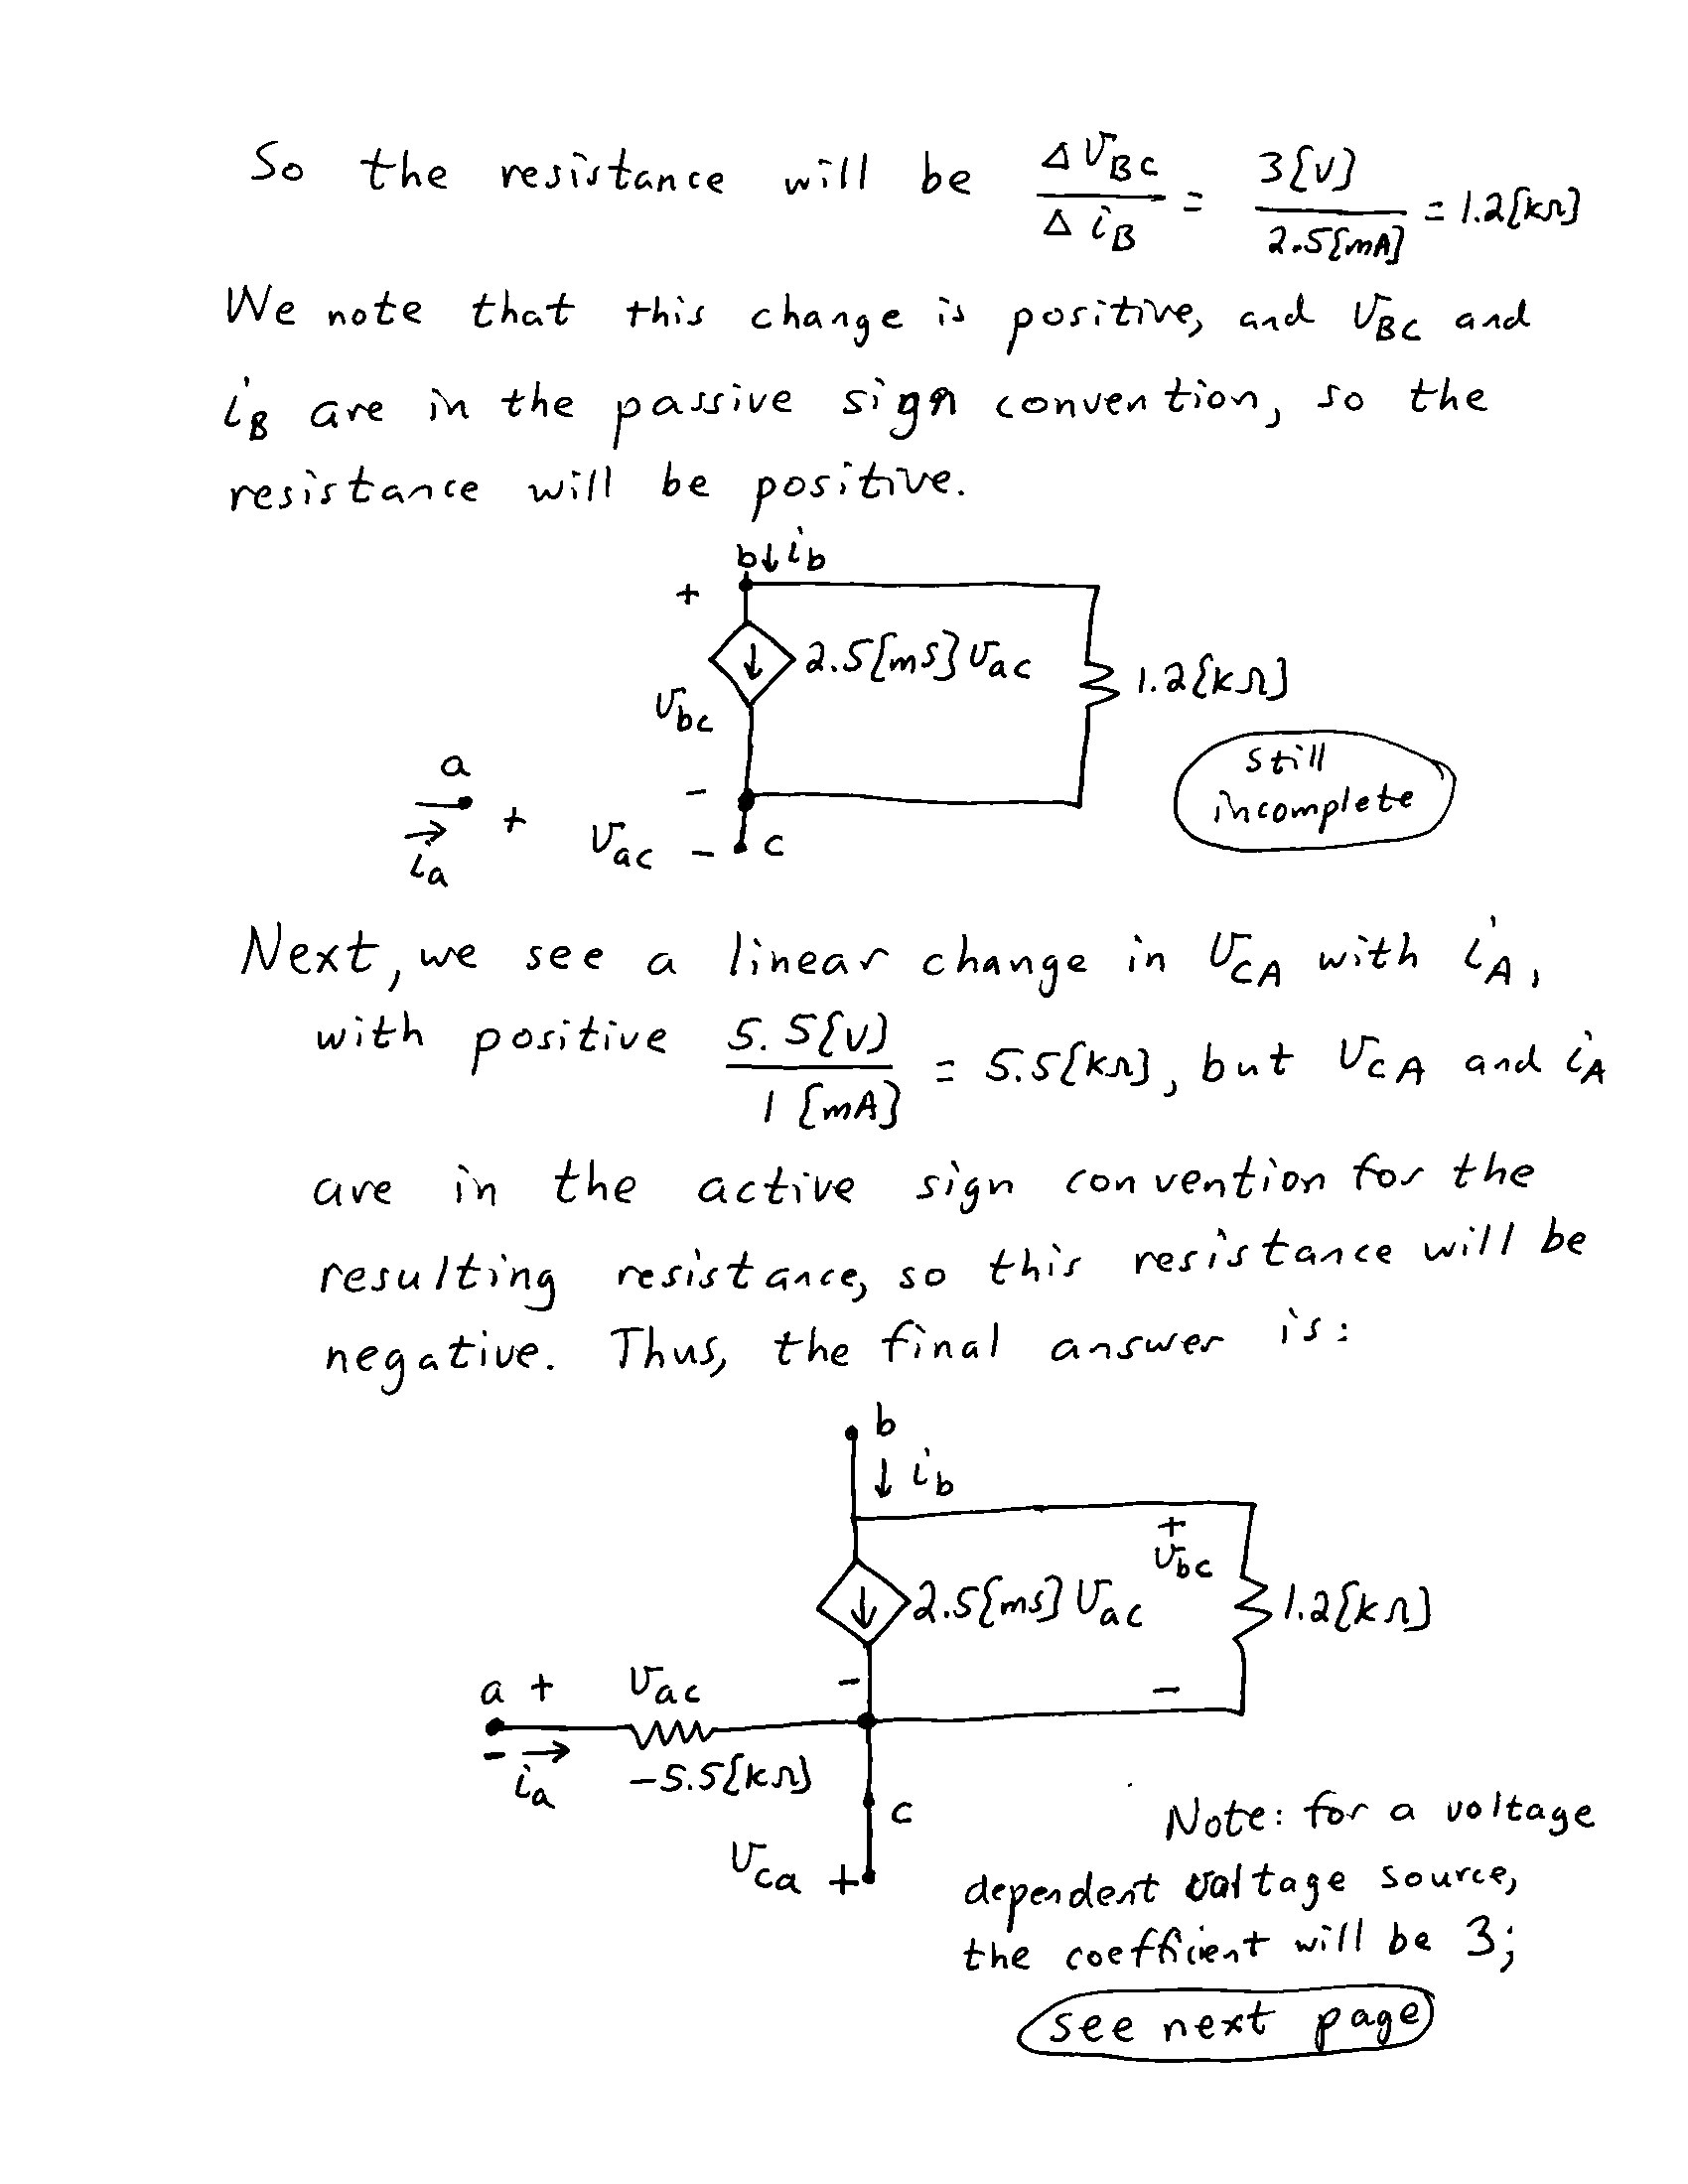 So the resistance will be ΔvBC / ΔiB = 3[V] / 2.5[mA] = 1.2[kΩ]
We note that this change is positive, and vBC and
iB are in the passive sign convention, so the
resistance will be positive.
b ↓ ib
+
2.5[mS] vac
1.2[kΩ]
vbc
still
incomplete
a
-
+
vac - c
ia
Next, we see a linear change in vCA with iA,
with positive 5.5[V] / 1[mA] = 5.5[kΩ], but vCA and iA
are in the active sign convention for the
resulting resistance, so this resistance will be
negative. Thus, the final answer is:
b
↓ ib
+
vbc
2.5[mS] vac
1.2[kΩ]
a + vac - -
- → ia
-5.5[kΩ]
c
vca +
Note: for a voltage
dependent voltage source,
the coefficient will be 3;
see next page